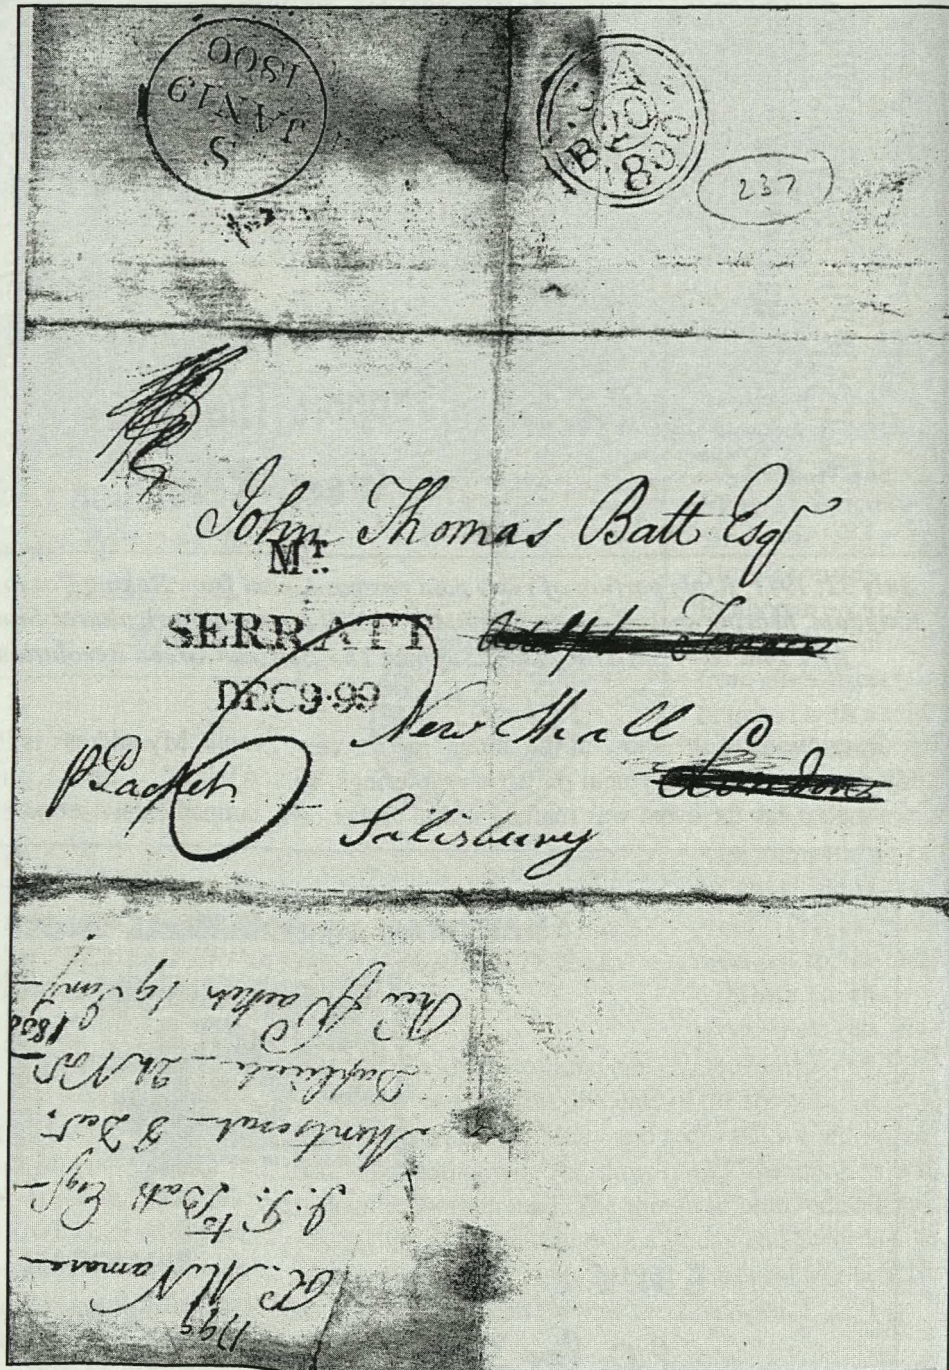 S
JAN 19
1800
JA
20
B 800
237
John Thomas Batt Esqr
Mᵀ.
SERRATT
DEC 9·99
New Hall
London
p Packet
Salisbury
1799
McNamara
to
J. T. Batt Esqr
Montserrat 8 Decr.
Duplicate 24 Nov
Recd p Packet 19 Jany
1800